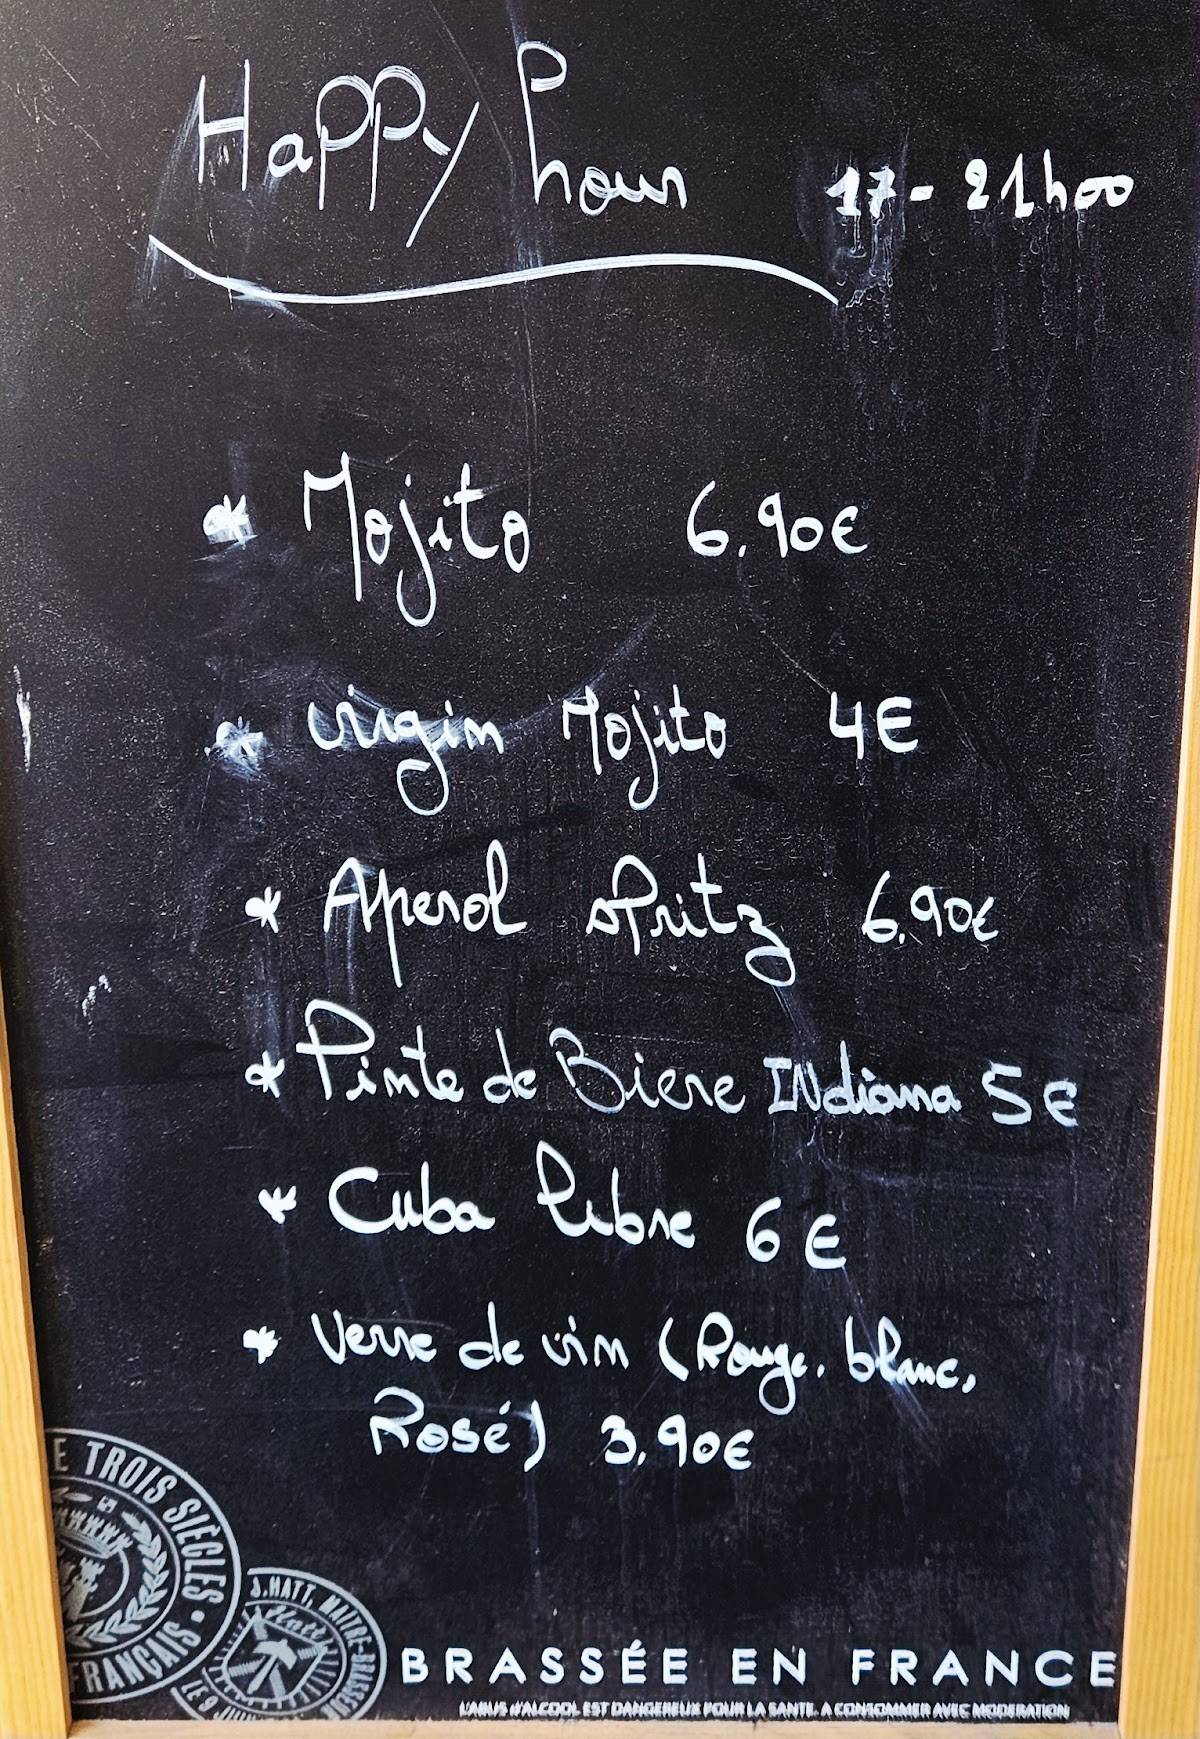 Happy hour 17-21h00
* Mojito 6.90€
* virgin Mojito 4€
* Aperol sPritz 6.90€
* Pinte de Biere INdiana 5€
* Cuba libre 6€
* Verre de vin (Rouge, blanc,
Rosé) 3.90€
E TROIS SIÈCLES •
FRANÇAIS
J.HATT, MAÎTRE-BRASSEUR
Hatt
LE 9 JUIN
BRASSÉE EN FRANCE
L'ABUS d'ALCOOL EST DANGEREUX POUR LA SANTE. A CONSOMMER AVEC MODERATION